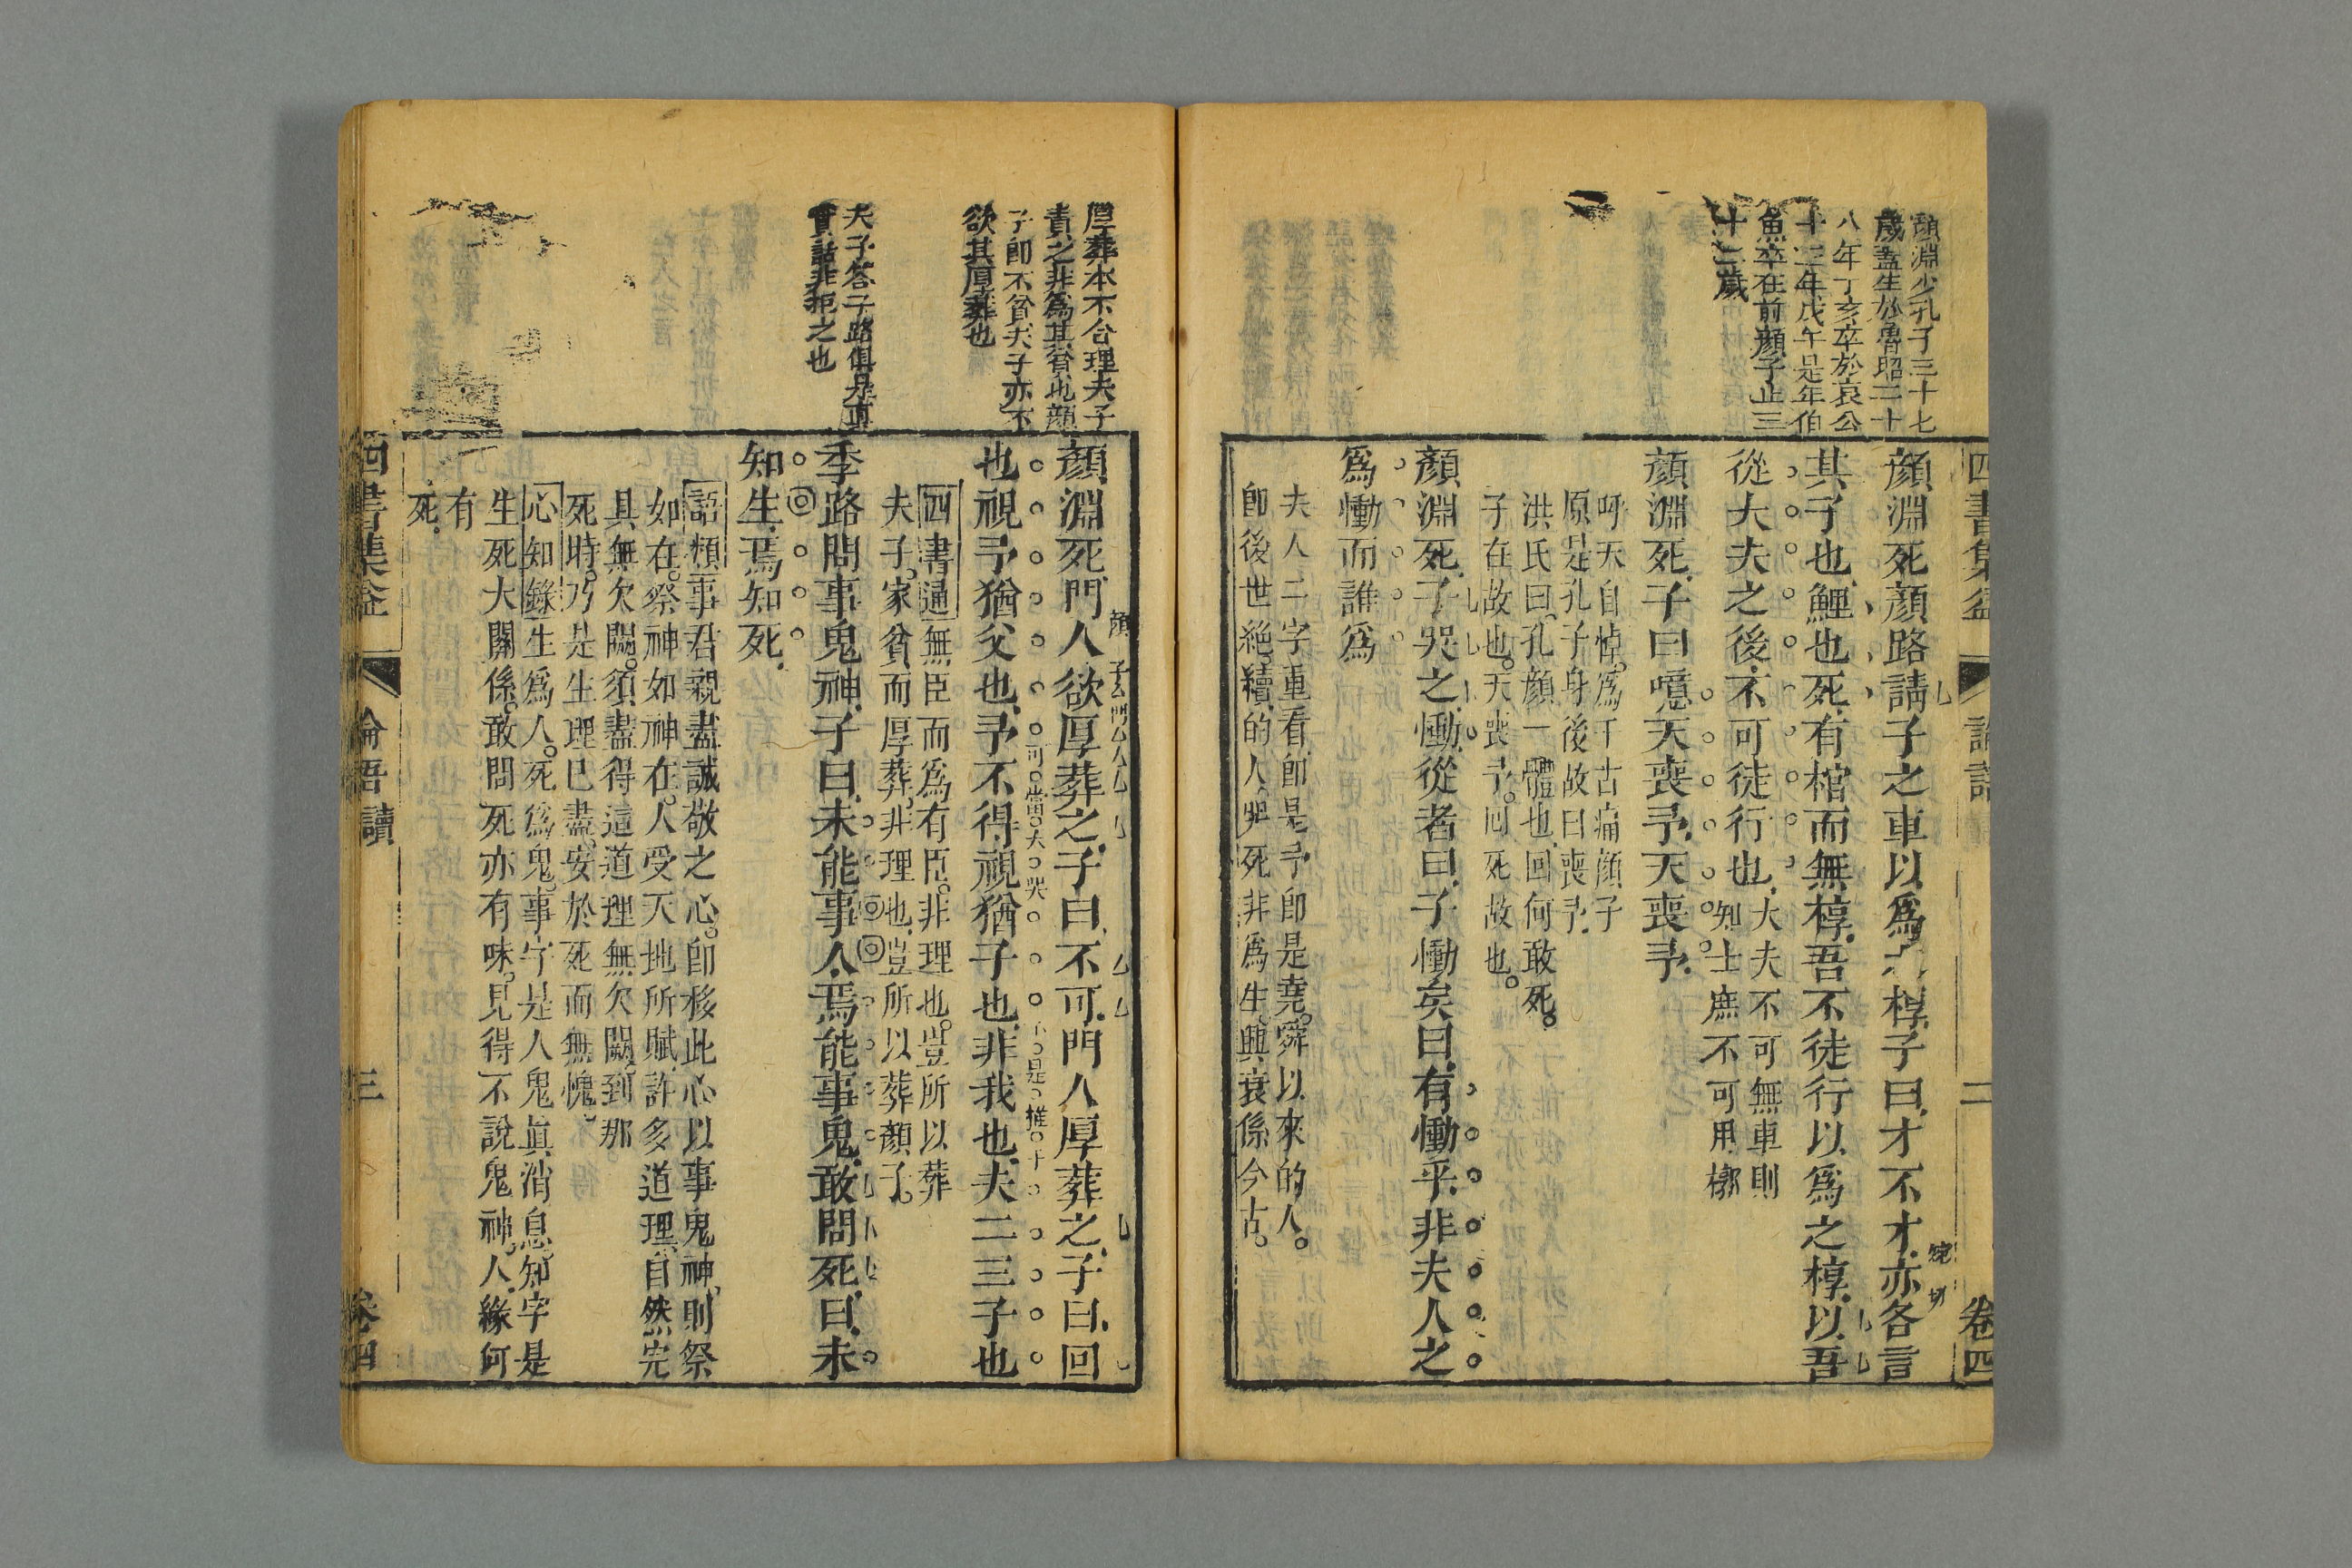 顏淵少孔子三十七
歲蓋生於魯昭二十
八年丁亥卒於哀公
十二年戊午是年伯
魚卒在前顏子止三
十二歲
四書集益
論語
二
卷四
顏淵死顏路請子之車以爲椁子曰才不才亦各言
其子也鯉也死有棺而無椁吾不徒行以爲之椁以吾
從大夫之後不可徒行也
大夫不可無車則
知士庶不可用槨
顏淵死子曰噫天喪予天喪予
呼天自悼爲千古痛顏子
原是孔子身後故曰喪予
洪氏曰孔顏一體也回何敢死
子在故也天喪予回死故也
顏淵死子哭之慟從者曰子慟矣曰有慟乎非夫人之
爲慟而誰爲
夫人二字重看卽是予卽是堯舜以來的人
卽後世絕續的人哭死非爲生興衰係今古
厚葬本不合理夫子
責之非爲其貧也顏
子卽不貧夫子亦不
欲其厚葬也
夫子答子路俱是眞
實話非拒之也
顏淵死門人欲厚葬之子曰不可門人厚葬之子曰回
也視予猶父也予不得視猶子也非我也夫二三子也
四書通無臣而爲有臣非理也豈所以葬
夫子家貧而厚葬非理也豈所以葬顏子
季路問事鬼神子曰未能事人焉能事鬼敢問死曰未
知生焉知死
語類事君親盡誠敬之心卽移此心以事鬼神則祭
如在祭神如神在人受天地所賦許多道理自然完
具無欠闕須盡得這道理無欠闕到那
死時乃是生理已盡安於死而無愧
心知錄生爲人死爲鬼事字是人鬼眞消息知字是
生死大關係敢問死亦有味見得不說鬼神人緣何
有
死
四書集益
論語讀
三
卷四